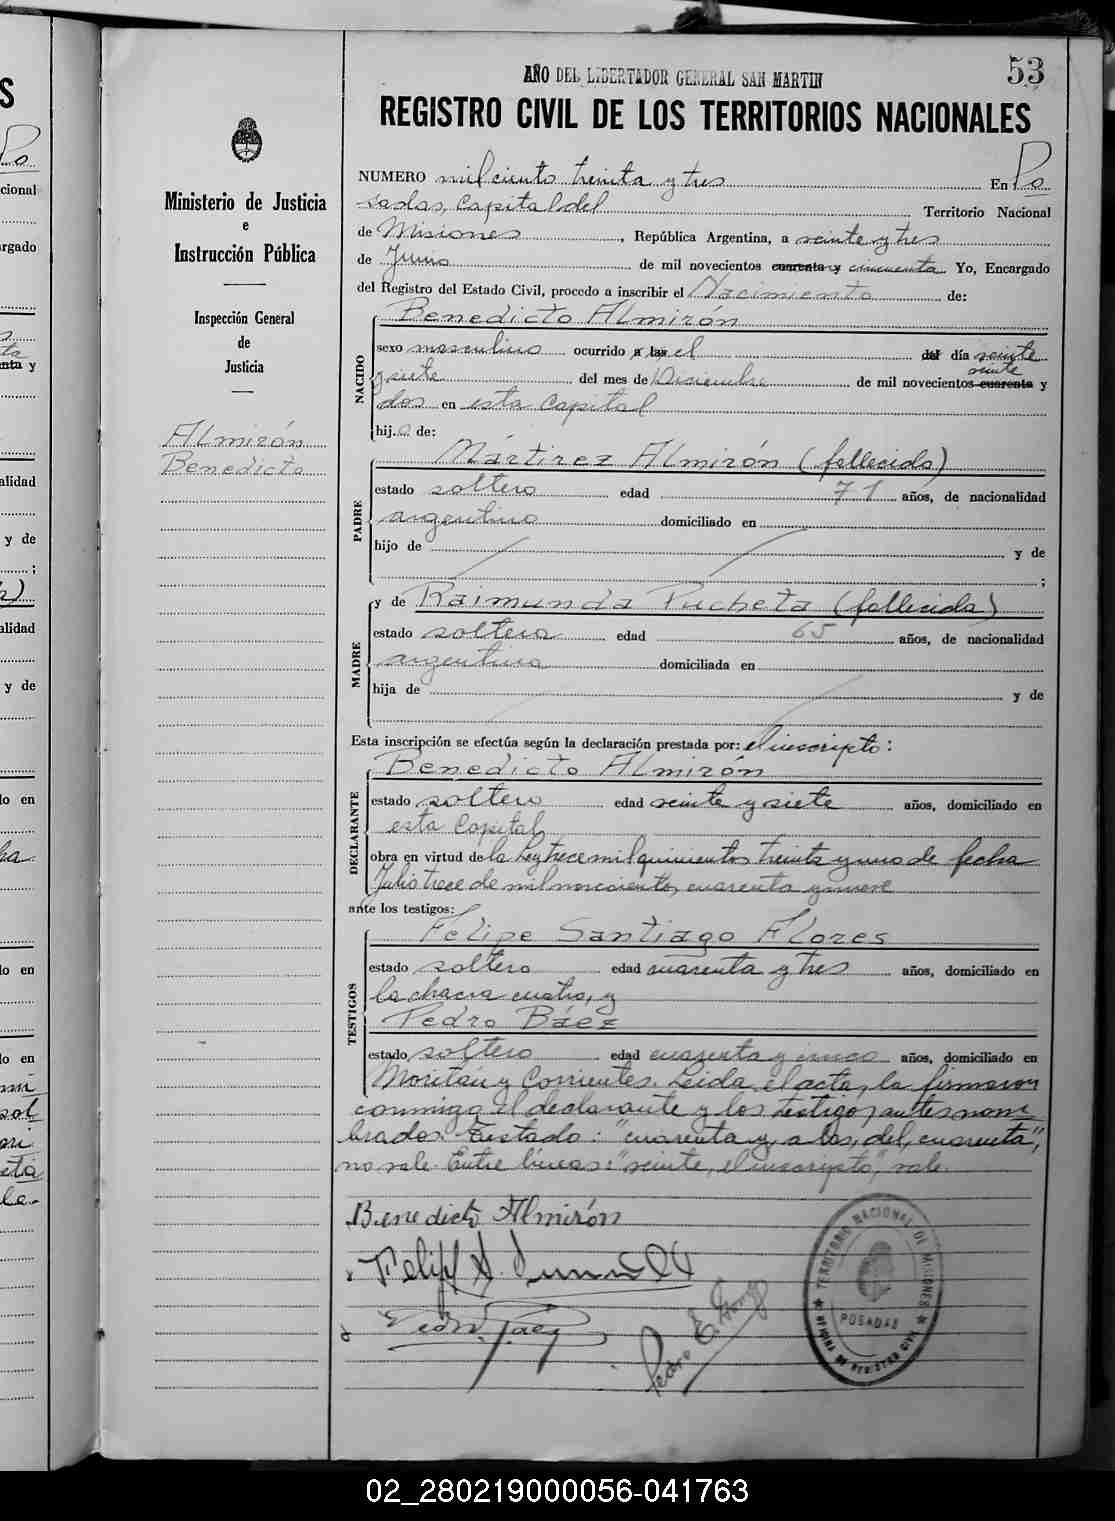 53
AÑO DEL LIBERTADOR GENERAL SAN MARTIN
REGISTRO CIVIL DE LOS TERRITORIOS NACIONALES
Ministerio de Justicia
e
Instrucción Pública
Inspección General
de
Justicia
Almirón
Benedicto
NUMERO mil ciento treinta y tres En Po
sadas, Capital del Territorio Nacional
de Misiones, República Argentina, a veinte y tres
de Junio de mil novecientos cuarenta y cincuenta Yo, Encargado
del Registro del Estado Civil, procedo a inscribir el Nacimiento de:
Benedicto Almirón
NACIDO
sexo masculino ocurrido a las, el del día veinte
veinte
y siete del mes de Diciembre de mil novecientos cuarenta y
dos en esta Capital
hijo de:
Mártirez Almirón (fallecido)
PADRE
estado soltero edad 71 años, de nacionalidad
argentino domiciliado en
hijo de y de
;
y de Raimunda Pucheta (fallecida)
MADRE
estado soltera edad 65 años, de nacionalidad
argentina domiciliada en
hija de y de
Esta inscripción se efectúa según la declaración prestada por: el inscripto:
Benedicto Almirón
DECLARANTE
estado soltero edad veinte y siete años, domiciliado en
esta Capital
obra en virtud de la Ley trece mil quinientos treinta y uno de fecha
Julio trece de mil novecientos cuarenta y nueve
ante los testigos:
Felipe Santiago Flores
TESTIGOS
estado soltero edad cuarenta y tres años, domiciliado en
la chacra cuatro, y
Pedro Báez
estado soltero edad cuarenta y cinco años, domiciliado en
Moritán y Corrientes. Leida el acta, la firmaron
conmigo el declarante y los testigos antes nom
brados. Testado: "cuarenta y, a las, del, cuarenta",
no vale. Entre líneas: "veinte, el inscripto", vale.
Benedicto Almirón
Pedro Báez
TERRITORIO NACIONAL DE MISIONES
POSADAS
OFICINA DE REGISTRO CIVIL
02_280219000056-041763